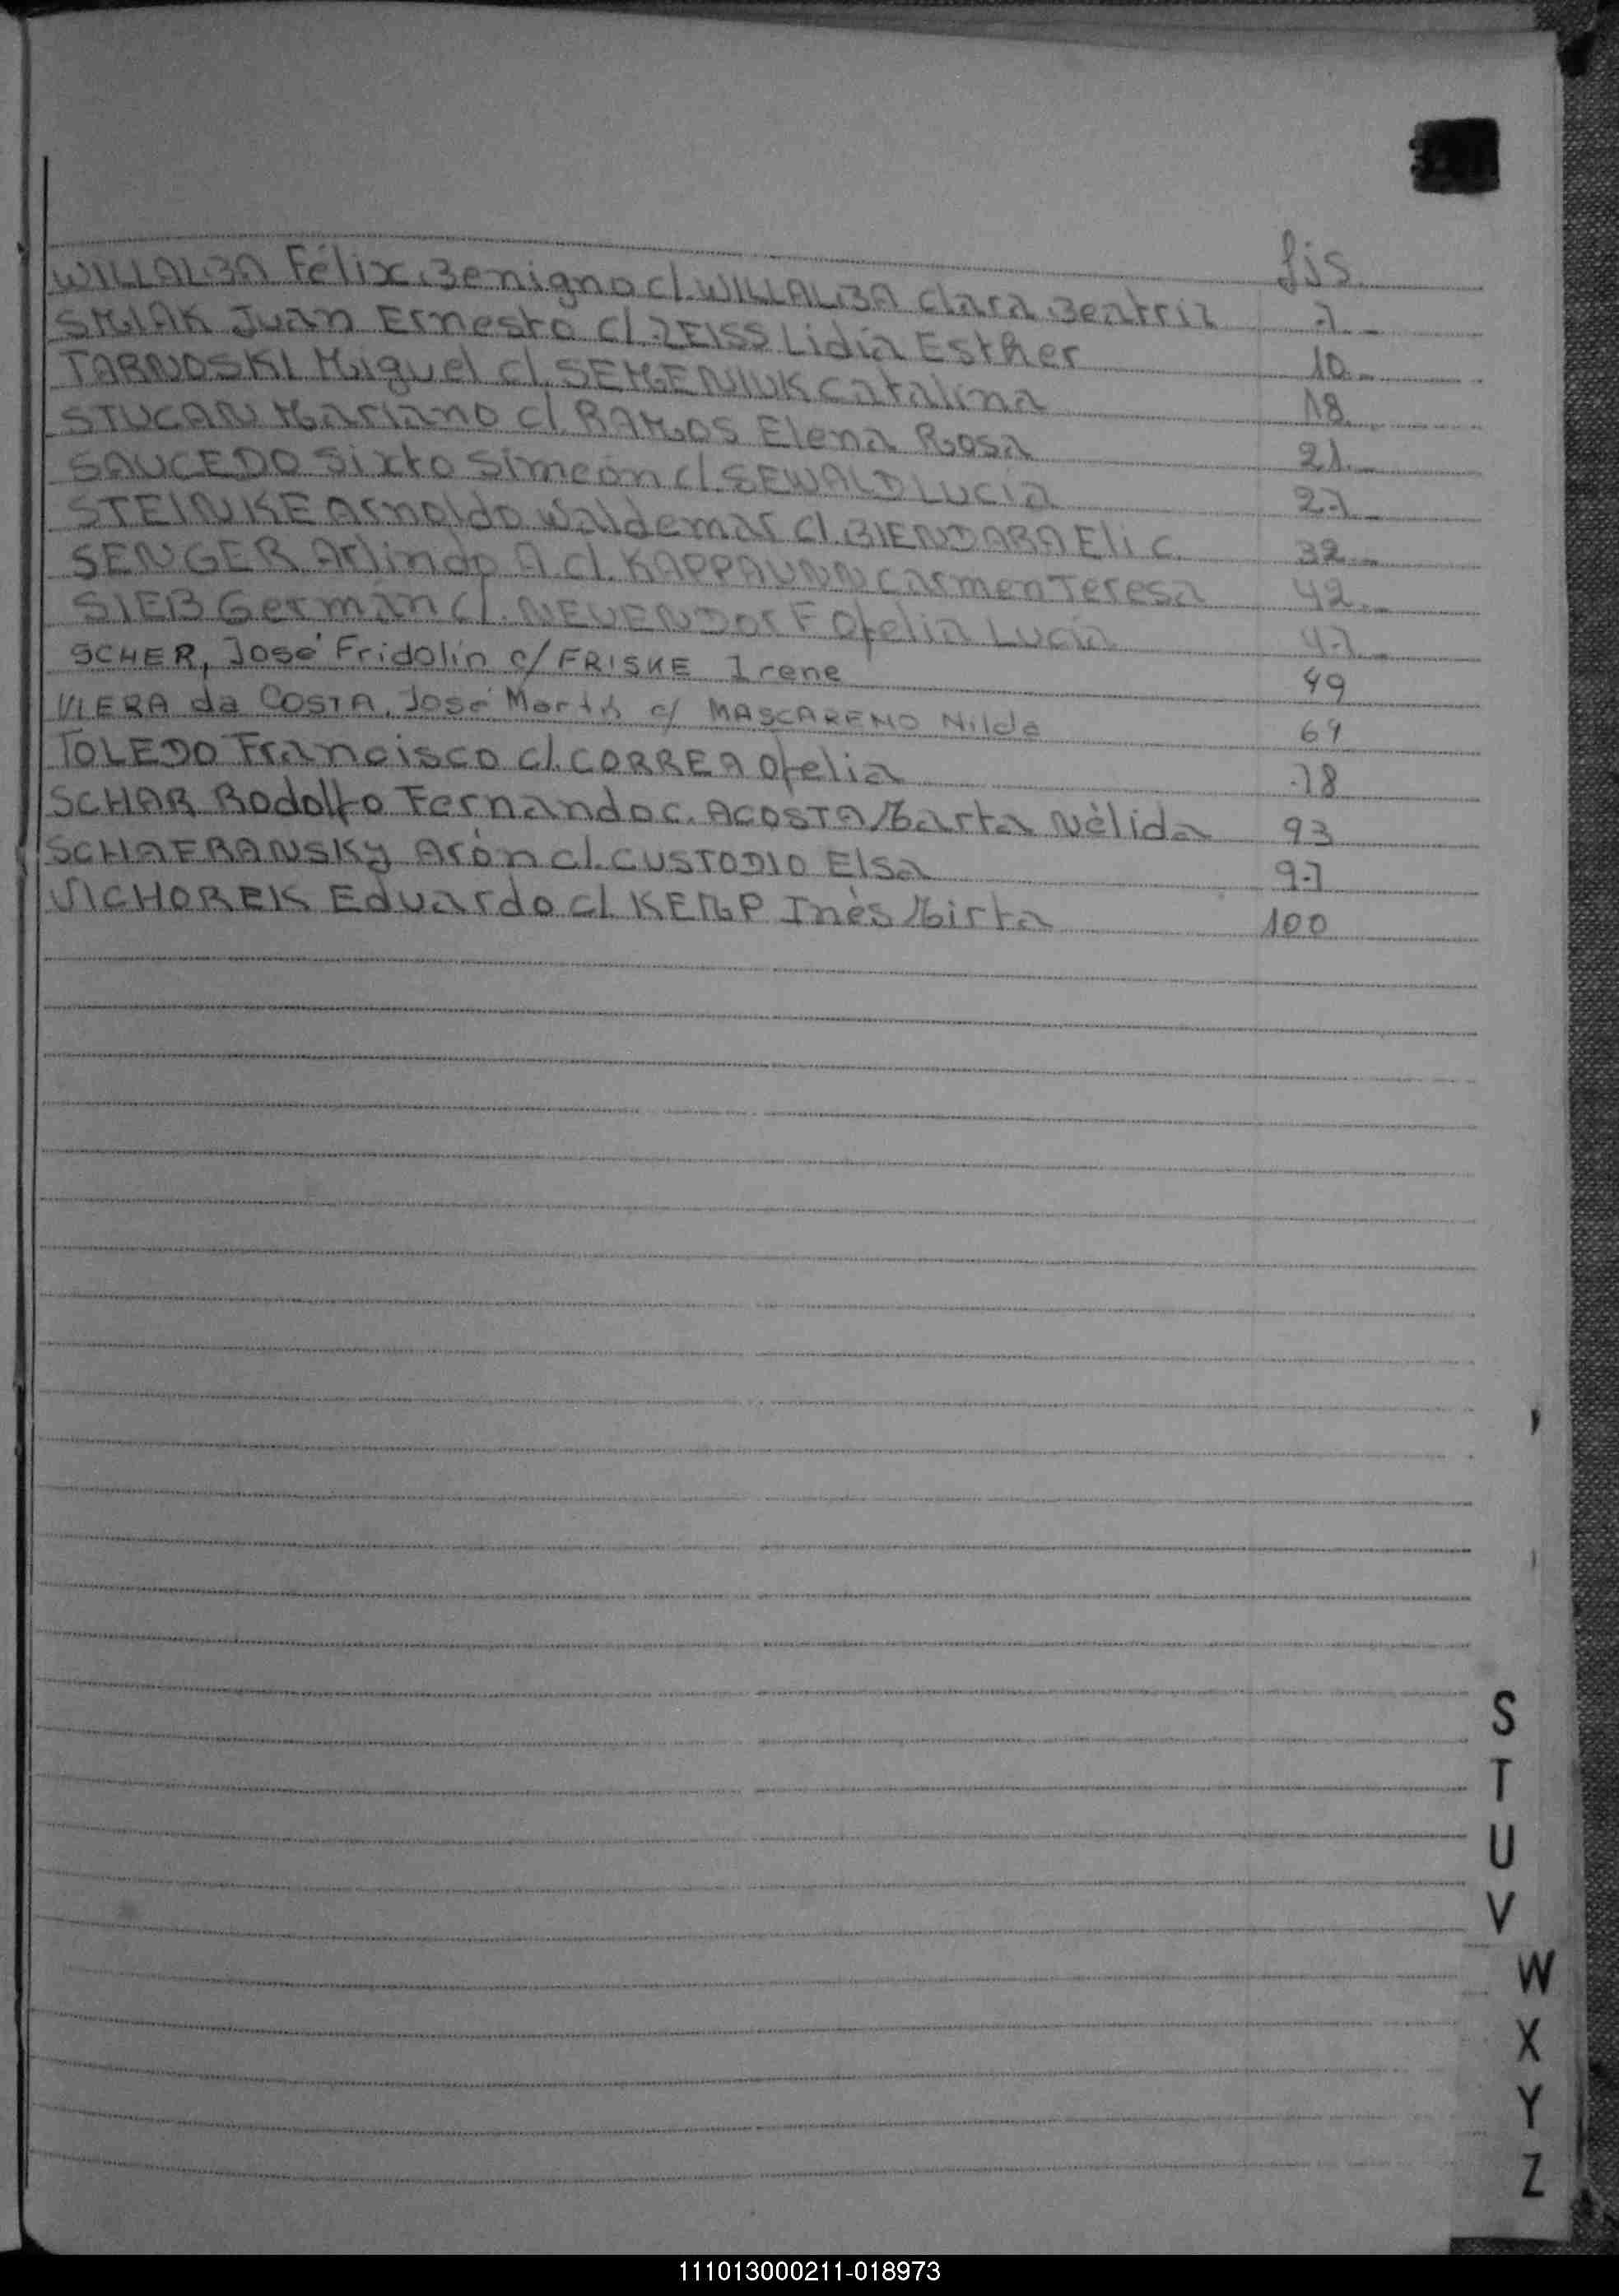 fjs.
WILLALBA Félix Benigno c/. WILLALBA Clara Beatriz 7.-
SMIAK Juan Ernesto c/. ZEISS Lidia Esther 10.-
TARNOSKI Miguel c/. SEMGENIUK Catalina 18.
STUCAN Mariano c/. RAMOS Elena Rosa 21.-
SAUCEDO Sixto Simeón c/. SEWALD LUCIA 27.-
STEINKE Arnoldo Waldemar c/. BIENDARA Eli C. 32.-
SENGER Arlindo A c/. KAPPAUNN Carmen Teresa 42.-
SIEB German c/. NEUENDorF Ofelia Lucía 47.-
SCHER, José Fridolín c/ FRISKE Irene 49
VIERA da COSTA, José Martín c/ MASCARENO Nilda 64
TOLEDO Francisco c/. CORREA Ofelia 78
SCHAR Rodolfo Fernando c. ACOSTA Marta Nélida 93
SCHAFRANSKY Arón c/. CUSTODIO Elsa 97
VICHOREK Eduardo c/. KEMP Inés Mirta 100
S
T
U
V
W
X
Y
Z
111013000211-018973